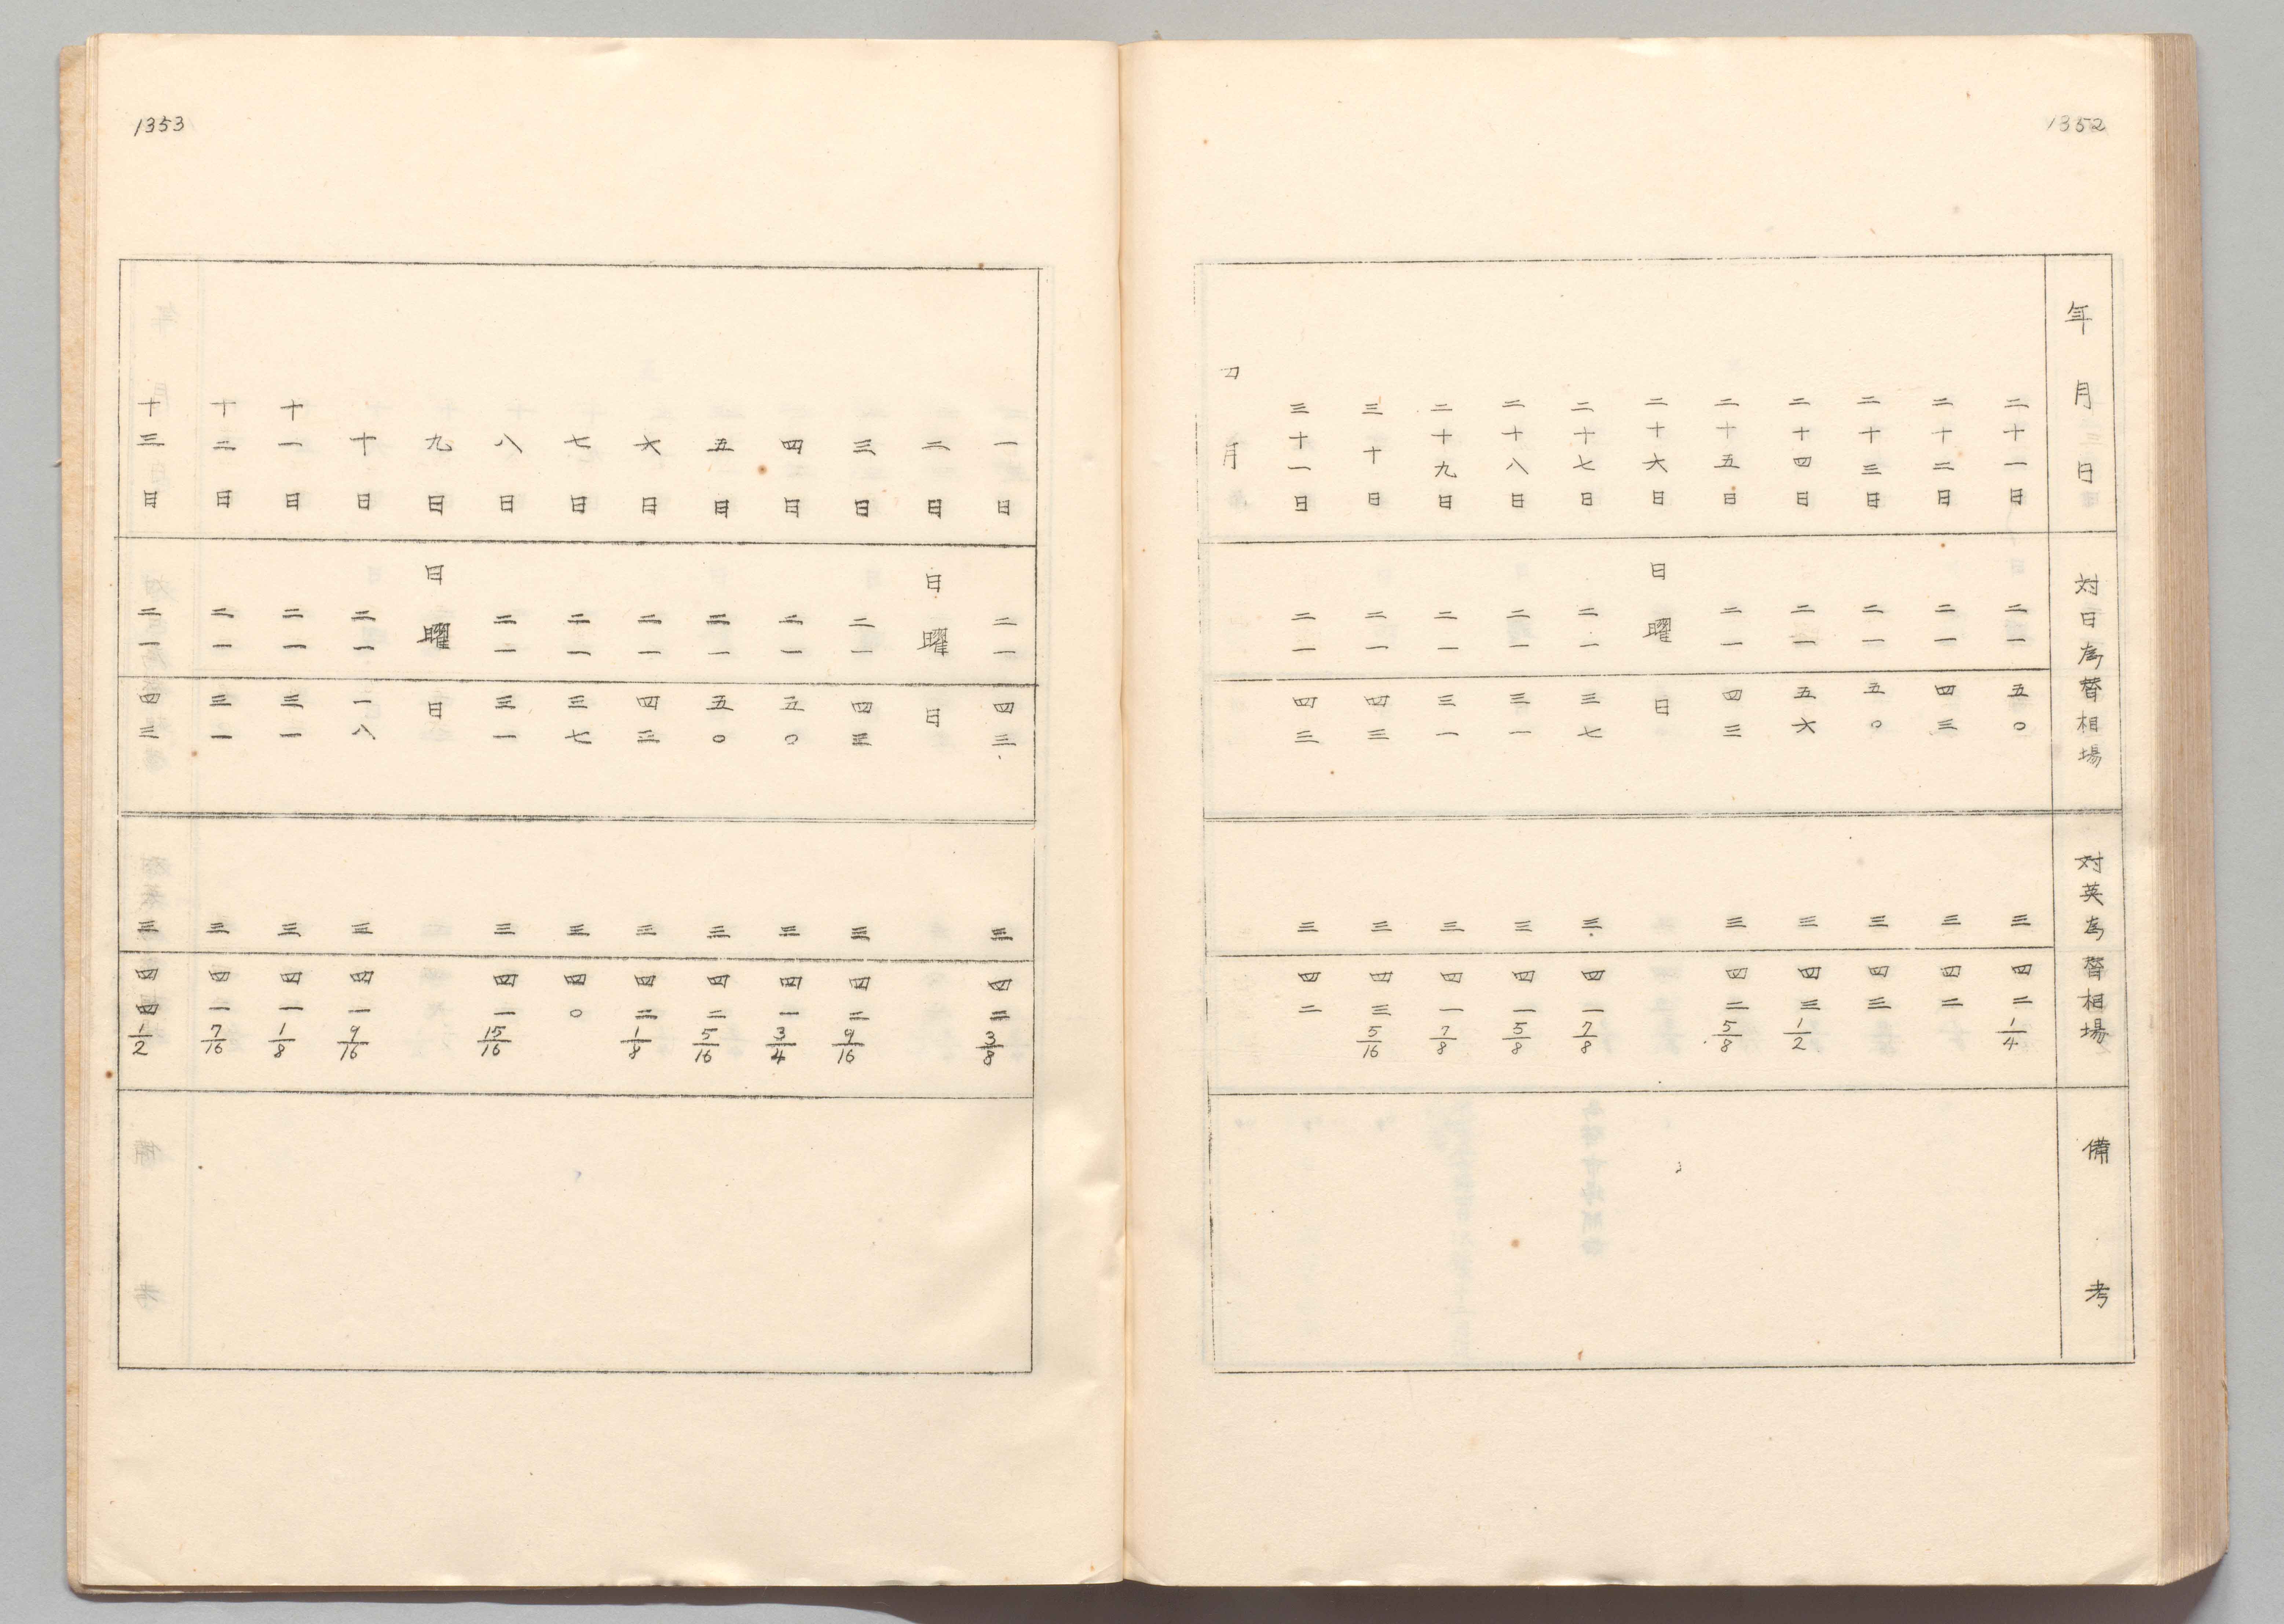 1352
年月日 対日為替相場 対英為替相場 備考
二十一日 二一 五〇 三 四二 1/4
二十二日 二一 四三 三 四二
二十三日 二一 五〇 三 四三
二十四日 二一 五六 三 四三 1/2
二十五日 二一 四三 三 四二 5/8
二十六日 日曜日
二十七日 二一 三七 三 四一 7/8
二十八日 二一 三一 三 四一 5/8
二十九日 二一 三一 三 四一 7/8
三十日 二一 四三 三 四三 5/16
三十一日 二一 四三 三 四二
四月
1353
一日 二一 四三 三 四二 3/8
二日 日曜日
三日 二一 四三 三 四二 9/16
四日 二一 五〇 三 四一 3/4
五日 二一 五〇 三 四二 5/16
六日 二一 四三 三 四二 1/8
七日 二一 三七 三 四〇
八日 二一 三一 三 四一 15/16
九日 日曜日
十日 二一 一八 三 四一 9/16
十一日 二一 三一 三 四一 1/8
十二日 二一 三一 三 四一 7/16
十三日 二一 四三 三 四四 1/2